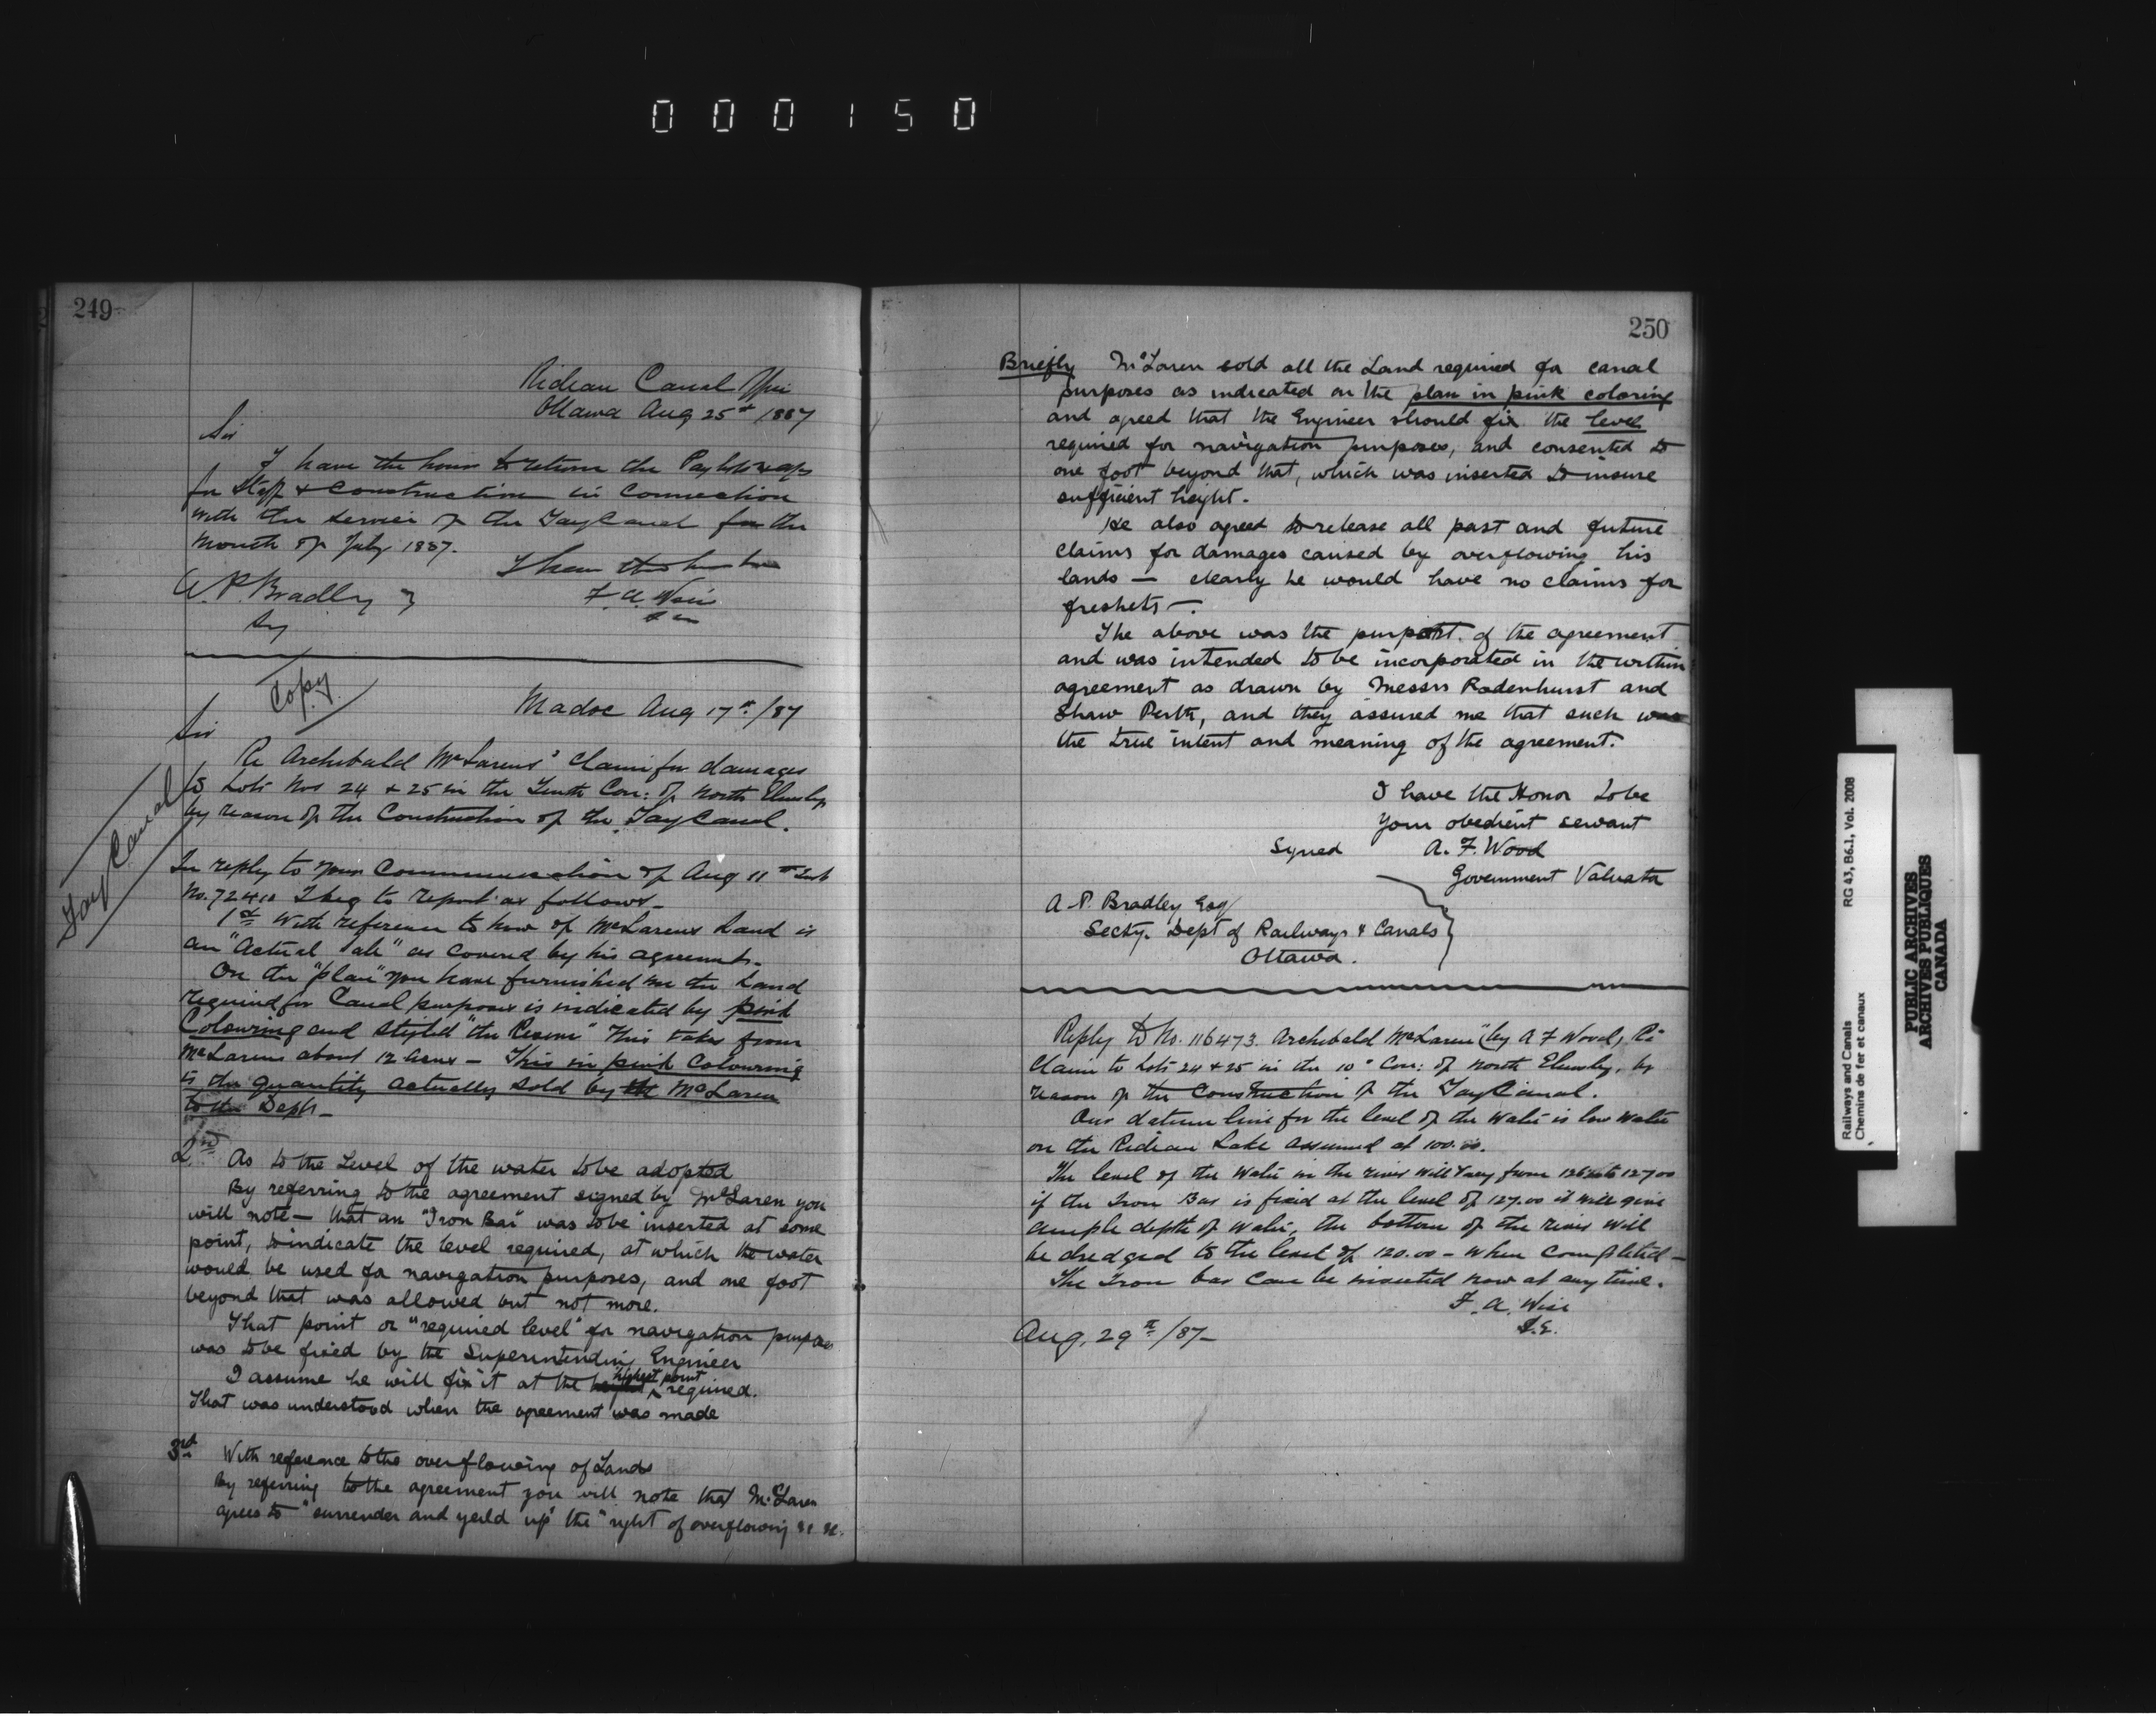 000150
249
Rideau Canal Office
Ottawa Aug 25th /1887
Sir
I have the honor to return the Paylists & a/ps
for Staff & Construction in connection
with the service of the Tay Canal for the
month of July 1887.
I have the honor to be
F. A. Wise
A. P. Bradley }
Sy
Copy
Madoc Aug 17th /87
Sir
Re Archibald McLarens' claim for damages
to Lots Nos 24 & 25 in the Tenth Con: of North Elmsley
by reason of the Construction of the Tay Canal.
Tay Canal
In reply to your Communication of Aug 11th
No. 72410 I beg to report as follows-
1st With reference to how of McLarens Land is
an "Actual Sale" as covered by his agreement.
On the "plan" you have furnished me the Land
required for Canal purposes is indicated by pink
Colouring and styled "the Reserve" This takes from
McLarens about 12 Acres - This in pink Colouring
is the quantity actually sold by the McLaren
to the Dept-
2nd As to the Level of the water to be adopted
By referring to the agreement signed by McLaren you
will note - that an "Iron Bar" was to be inserted at some
point, to indicate the level required, at which the water
would be used for navigation purposes, and one foot
beyond that was allowed but not more.
That point or "required level" for navigation purposes
was to be fixed by the Superintending Engineer
I assume he will fix it at the highest point required.
That was understood when the agreement was made
3rd With reference to the overflowing of Lands
By referring to the agreement you will note that McLaren
agrees to "surrender and yeild up" the "right of overflowing &c &c.
250
Briefly McLaren sold all the Land required for canal
purposes as indicated on the plan in pink coloring
and agreed that the Engineer should fix the level
required for navigation purposes, and consented to
one foot beyond that, which was inserted to insure
sufficient height.
He also agreed to release all past and future
claims for damages caused by overflowing his
lands — clearly he would have no claims for
freshets —.
The above was the purport of the agreement
and was intended to be incorporated in the written
agreement as drawn by Messrs Radenhurst and
Shaw Perth, and they assured me that such was
the true intent and meaning of the agreement.
I have the Honor to be
Your obedient servant
Signed A. F. Wood
Government Valuator
A. P. Bradley Esq
Secty. Dept of Railways & Canals
Ottawa.
Reply to No. 116473. Archibald McLaren (by A F Wood) Re
Claim to Lots 24 & 25 in the 10th Con: of North Elmsley, by
reason of the Construction of the Tay Canal.
Our datum line for the level of the Water is low water
on the Rideau Lake assumed at 100.00.
The level of the Water in the river will vary from 126 to 127.00
if the Iron Bar is fixed at the level of 127.00 it will give
ample depth of water, the bottom of the river will
be dredged to the level of 120.00 - when completed -
The Iron bar can be inserted now at any time.
F. A. Wise
S.E.
Aug, 29th /87-
Railways and Canals RG 43, B6.1, Vol. 2008
Chemins de fer et canaux
PUBLIC ARCHIVES
ARCHIVES PUBLIQUES
CANADA